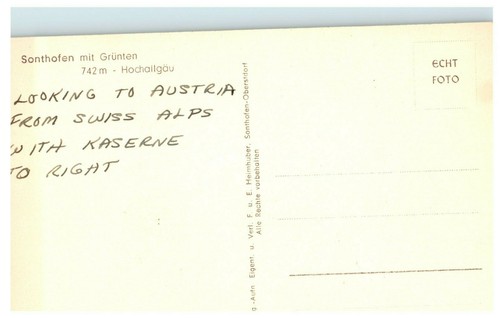 Sonthofen mit Grünten
742 m - Hochallgäu
LOOKING TO AUSTRIA
FROM SWISS ALPS
WITH KASERNE
TO RIGHT
-Aufn. Eigent. u. Verl. F. u. E. Heimhuber, Sonthofen-Oberstdorf
Alle Rechte vorbehalten
ECHT
FOTO